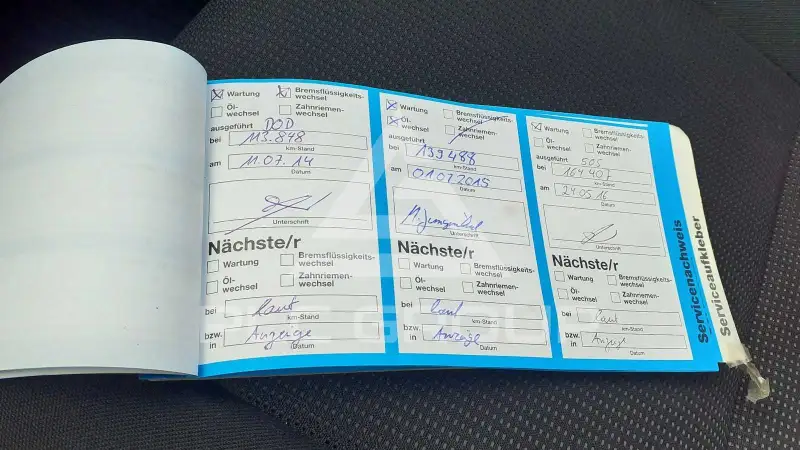 Wartung Bremsflüssigkeits-
wechsel
Öl-
wechsel Zahnriemen-
wechsel
ausgeführt DOD
bei 113.848
km-Stand
am 11.07.14
Datum
Unterschrift
Nächste/r
Wartung Bremsflüssigkeits-
wechsel
Öl-
wechsel Zahnriemen-
wechsel
bei laut
km-Stand
bzw.
in Anzeige
Datum
Wartung Bremsflüssigkeits-
wechsel
Öl-
wechsel Zahnriemen-
wechsel
ausgeführt
bei 139488
km-Stand
am 01.07.2015
Datum
Unterschrift
Nächste/r
Wartung Bremsflüssigkeits-
wechsel
Öl-
wechsel Zahnriemen-
wechsel
bei laut
km-Stand
bzw.
in Anzeige
Datum
Wartung Bremsflüssigkeits-
wechsel
Öl-
wechsel Zahnriemen-
wechsel
ausgeführt 505
bei 164407
km-Stand
am 24.05.16
Datum
Unterschrift
Nächste/r
Wartung Bremsflüssigkeits-
wechsel
Öl-
wechsel Zahnriemen-
wechsel
bei laut
km-Stand
bzw.
in Anzeige
Datum
Servicenachweis
Serviceaufkleber